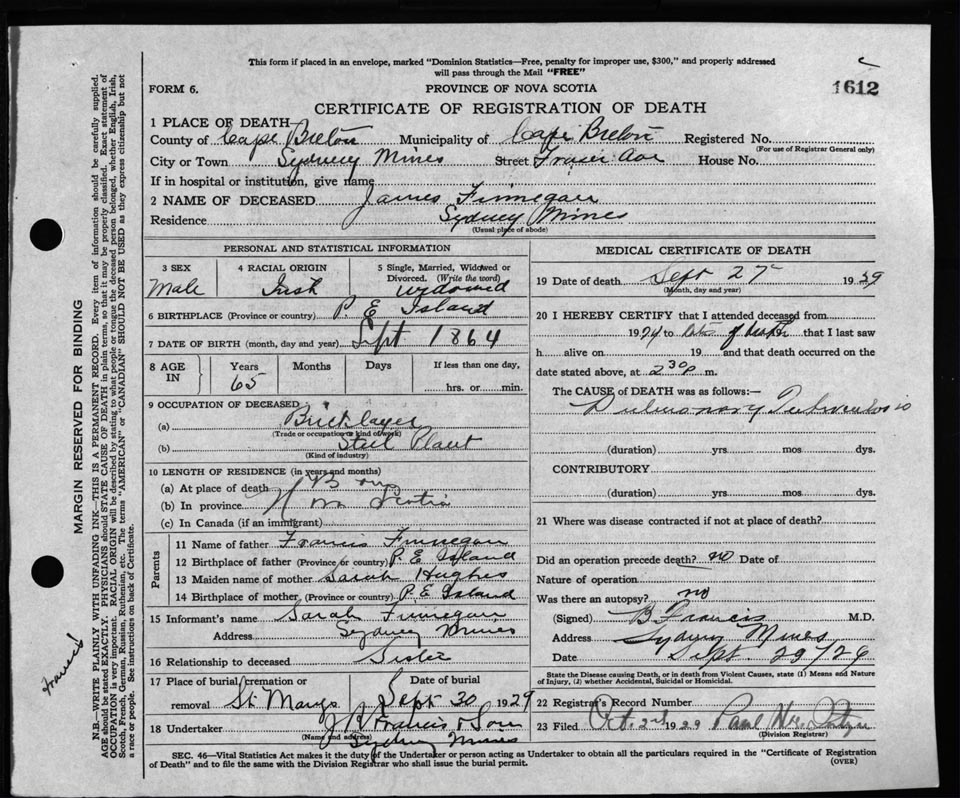 This form if placed in an envelope, marked "Dominion Statistics—Free, penalty for improper use, $300," and properly addressed
will pass through the Mail "FREE"
FORM 6.
PROVINCE OF NOVA SCOTIA
1612
CERTIFICATE OF REGISTRATION OF DEATH
1 PLACE OF DEATH—
County of Cape Breton Municipality of Cape Breton Registered No.
(For use of Registrar General only)
City or Town Sydney Mines Street Fraser Ave House No.
If in hospital or institution, give name
2 NAME OF DECEASED James Finnegan
Residence Sydney Mines
(Usual place of abode)
PERSONAL AND STATISTICAL INFORMATION
3 SEX Male
4 RACIAL ORIGIN Irish
5 Single, Married, Widowed or
Divorced. (Write the word)
widowed
6 BIRTHPLACE (Province or country) P. E Island
7 DATE OF BIRTH (month, day and year) Sept 1864
8 AGE IN
Years 65
Months
Days
If less than one day,
hrs. or min.
9 OCCUPATION OF DECEASED
(a) Bricklayer
(Trade or occupation or kind of work)
(b) Steel Plant
(Kind of industry)
10 LENGTH OF RESIDENCE (in years and months)
(a) At place of death 43 yrs
(b) In province Nova Scotia
(c) In Canada (if an immigrant)
Parents
11 Name of father Francis Finnegan
12 Birthplace of father (Province or country) P. E Island
13 Maiden name of mother Sarah Hughes
14 Birthplace of mother (Province or country) P. E Island
15 Informant's name Sarah Finnegan
Address Sydney Mines
16 Relationship to deceased Sister
17 Place of burial, cremation or
removal St Marys
Date of burial
Sept 30 1929
18 Undertaker J. R Francis & Son
(Name and address)
Sydney Mines
MEDICAL CERTIFICATE OF DEATH
19 Date of death Sept 27 1929
(Month, day and year)
20 I HEREBY CERTIFY that I attended deceased from
1924 to of death that I last saw
h alive on 19 and that death occurred on
date stated above, at 2 30 P m.
The CAUSE OF DEATH was as follows:—
Pulmonary Tuberculosis
(duration) yrs mos dys.
CONTRIBUTORY
(duration) yrs mos dys.
21 Where was disease contracted if not at place of death?
Did an operation precede death? no Date of
Nature of operation
Was there an autopsy? no
(Signed) B Francis M.D.
Address Sydney Mines
Date Sept. 29/29
State the Disease causing Death, or in death from Violent Causes, state (1) Means and Nature
of Injury, (2) whether Accidental, Suicidal or Homicidal.
22 Registrar's Record Number
23 Filed Oct. 2nd 1929
(Division Registrar)
SEC. 46—Vital Statistics Act makes it the duty of the Undertaker or person acting as Undertaker to obtain all the particulars required in the "Certificate of Registration
of Death" and to file the same with the Division Registrar who shall issue the burial permit.
(OVER)
MARGIN RESERVED FOR BINDING
N.B.—WRITE PLAINLY WITH UNFADING INK—THIS IS A PERMANENT RECORD. Every item of information should be carefully supplied.
AGE should be stated EXACTLY. PHYSICIANS should STATE CAUSE OF DEATH in plain terms, so that it may be properly classified. Exact statement of
OCCUPATION is very important. RACIAL ORIGIN will be described by stating to what people or tongue the deceased person belonged, whether English, Irish,
Scotch, French, German, Russian, Ruthenian, etc. The terms "AMERICAN" or "CANADIAN" SHOULD NOT BE USED as they express citizenship but not
a race or people. See instructions on back of Certificate.
Francis